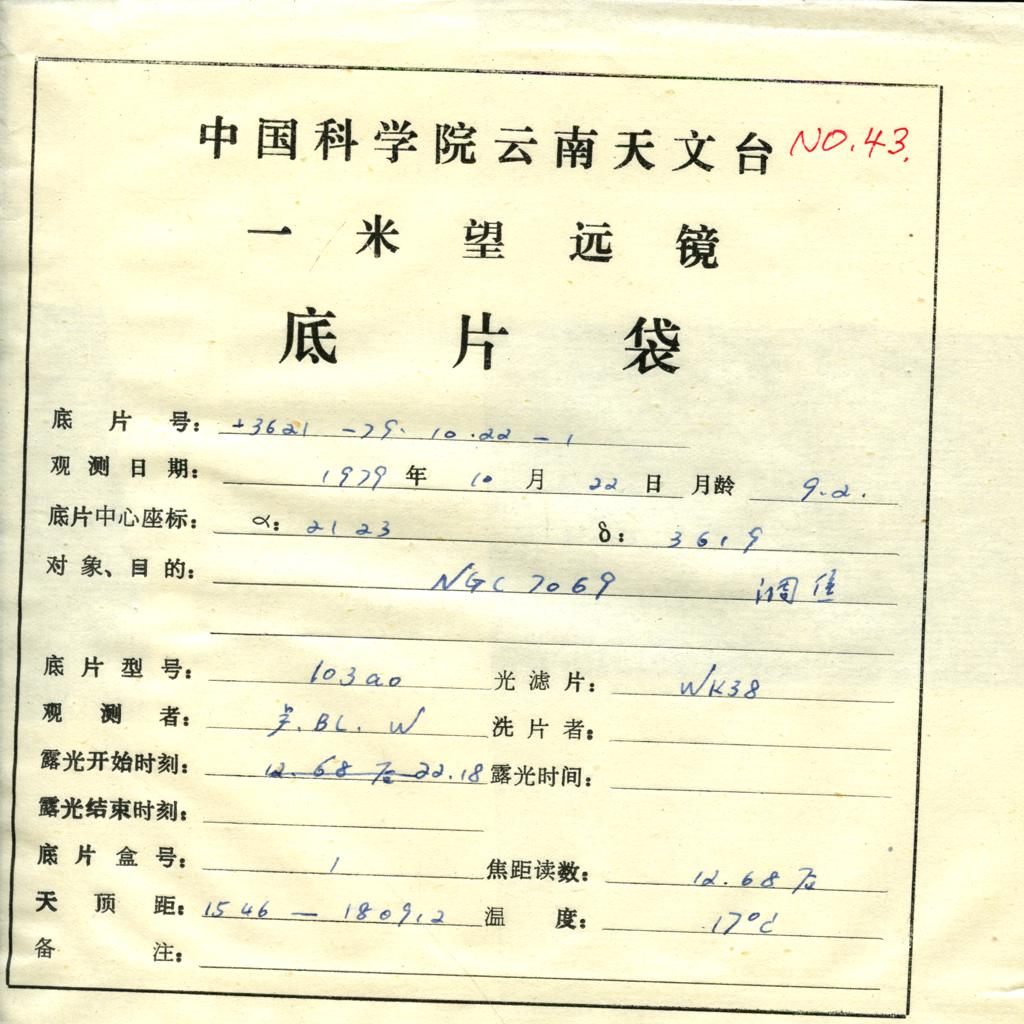 中国科学院云南天文台 NO.43.
一米望远镜
底片袋
底片号: +3621 -79. 10.22 - 1
观测日期: 1979 年 10 月 22 日 月龄 9.2.
底片中心座标: α: 21 23 δ: 3619
对象、目的: NGC 7069 调焦
底片型号: 103aO 光滤片: WK38
观测者: BL. W 洗片者:
露光开始时刻: 12.68 左 22.18 露光时间:
露光结束时刻:
底片盒号: 1 焦距读数: 12.68 左
天顶距: 1546 — 180912 温度: 17°C
备注: